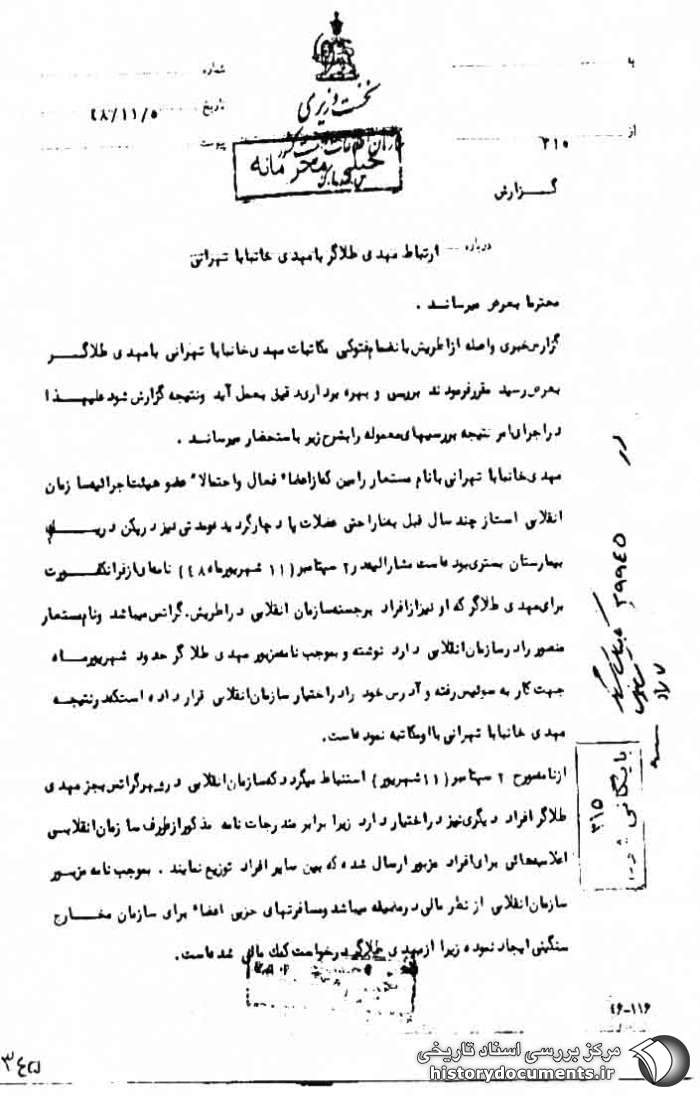 نخست وزیری
سازمان اطلاعات و امنیت کشور
س.ا.و.ا.ک
خیلی محرمانه
به
شماره
تاریخ ۴۸/۱۱/۵
از ۳۱۵
پیوست
گزارش
درباره ارتباط مهدی طلاگر با مهدی خانبابا تهرانی
محترما بعرض میرساند .
گزارش خبری واصله از اطریش با نضمام فتوکپی مکاتبات مهدی خانبابا تهرانی با مهدی طلاگر
بعرض رسید مقرر فرمودند بررسی و بهره برداری دقیق بعمل آید ونتیجه گزارش شود علیهذا
در اجرای امر نتیجه بررسیهای معموله را بشرح زیر باستحضار میرساند .
مهدی خانبابا تهرانی با نام مستعار رامین که از اعضاء فعال واحتمالا عضو هیئت اجرائیه سازمان
انقلابی است از چند سال قبل بعنا راحتی عضلات پا دچار گردیده و مدتی نیز در پکن در
بیمارستان بستری بوده است مشارالیه در ۲ سپتامبر (۱۱ شهریور ماه ۴۸) نامه ای از فرانکفورت
برای مهدی طلاگر که او نیز از افراد برجسته سازمان انقلابی در اطریش ـ گراتس میباشد ونام مستعار
منصور را در سازمان انقلابی دارد نوشته و بموجب نامه مزبور مهدی طلاگر حدود شهریور ماه
جهت کار به سوئیس رفته و آدرس خود را در اختیار سازمان انقلابی قرار داده است که در نتیجه
مهدی خانبابا تهرانی با او مکاتبه نموده است.
از نامه مورخ ۲ سپتامبر (۱۱ شهریور) استنباط میگردد که سازمان انقلابی در شهر گراتس بجز مهدی
طلاگر افراد دیگری نیز در اختیار دارد زیرا برابر مندرجات نامه مذکور از طرف سازمان انقلابی
اعلامیه هائی برای افراد مزبور ارسال شده که بین سایر افراد توزیع نمایند . بموجب نامه مزبور
سازمان انقلابی از نظر مالی در مضیقه میباشد ومسافرتهای حزبی اعضاء برای سازمان مخارج
سنگینی ایجاد نموده زیرا از مهدی طلاگر درخواست کمک مالی شده است.
۲۹۹۴۵
بایگانی شود
۳۱۵
۴۶-۱۱۶
مرکز بررسی اسناد تاریخی
historydocuments.ir